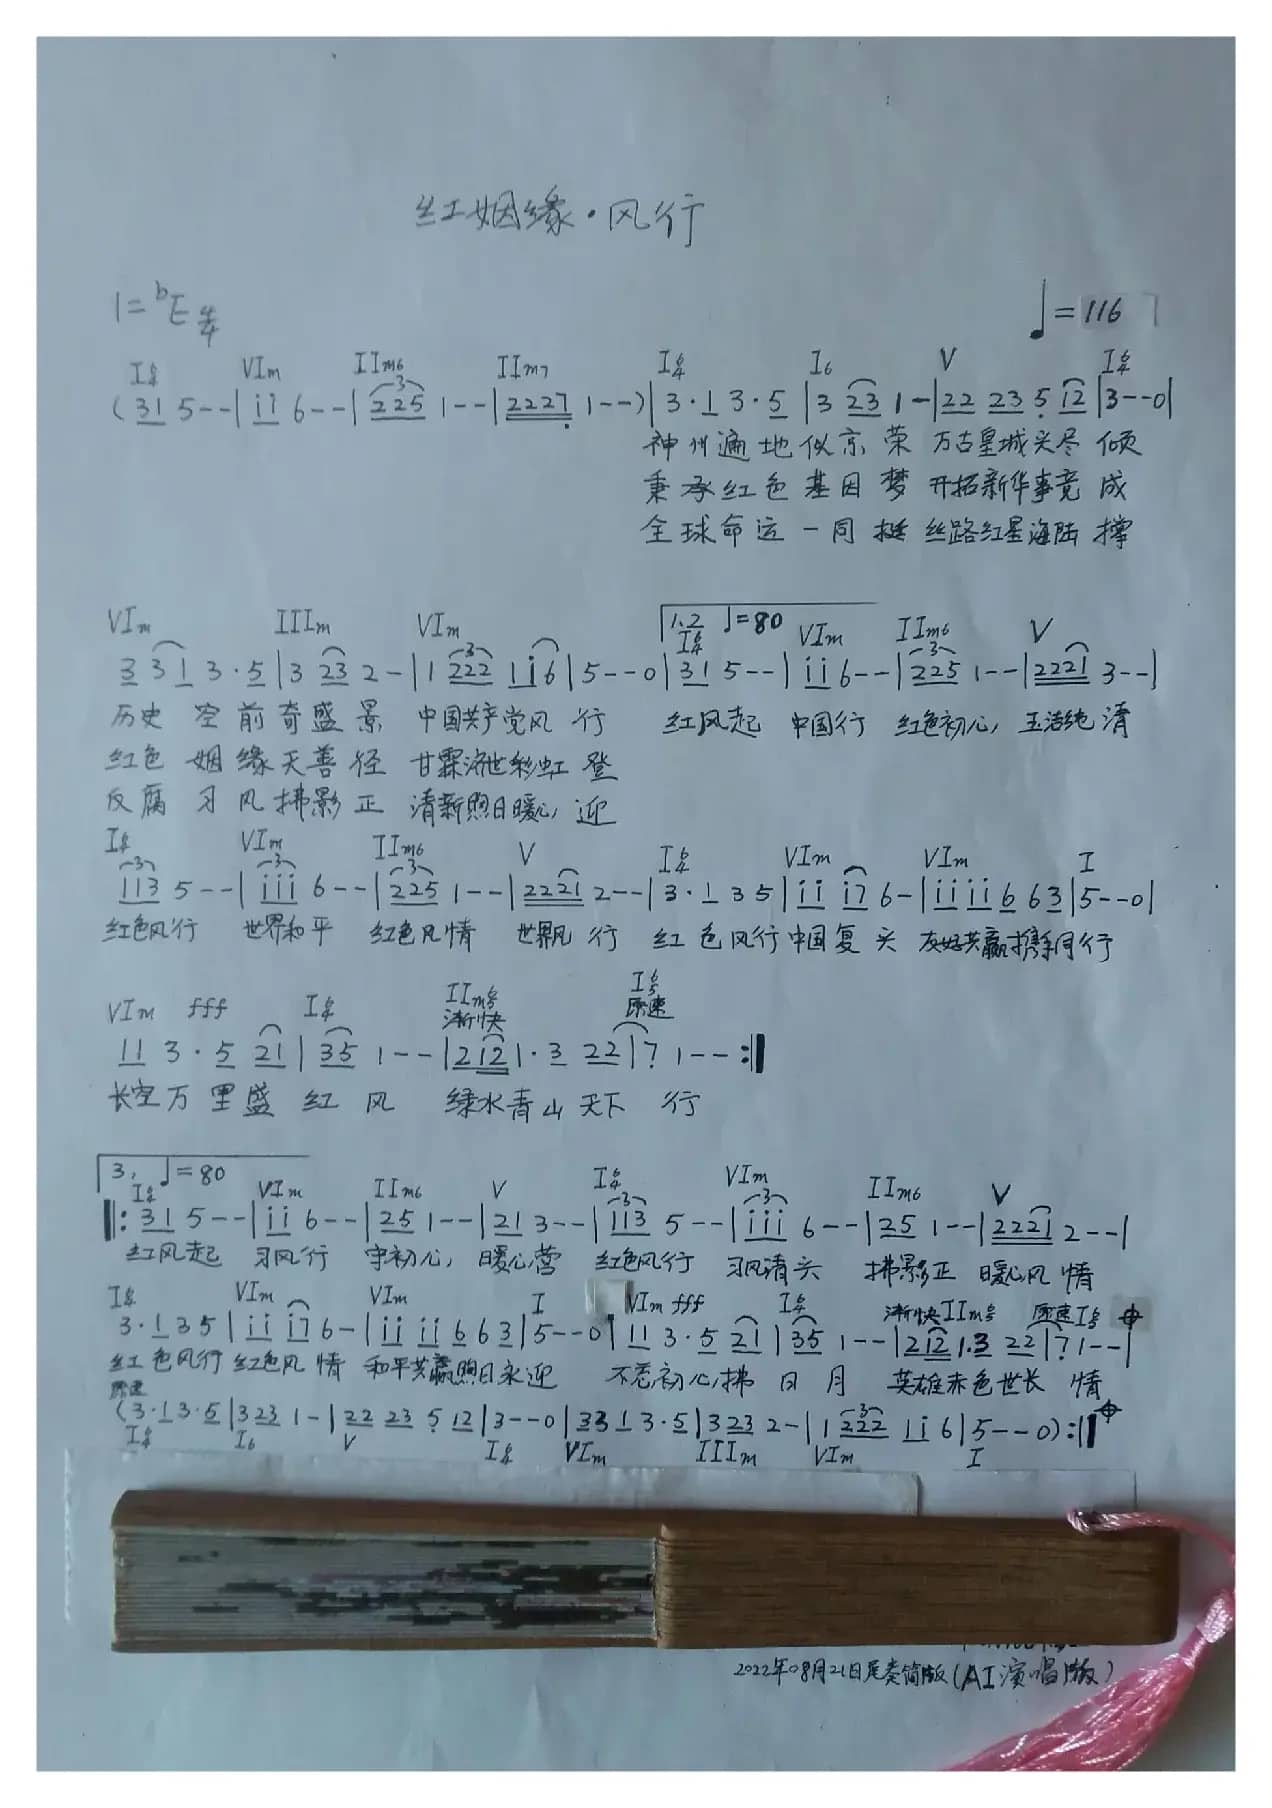 红姻缘·风行
1=ᵇE 4/4 ♩=116
I6/4 VIm IIm6 IIm7 I6/4 I6 V I6/4
(31 5--|ii 6--|225 1--|2227 1--)|3·1 3·5|3 23 1-|22 23 5 12|3--0|
神州遍地似京荣 万古皇城头尽倾
秉承红色基因梦 开拓新华事竟成
全球命运一同挺 丝路红星海陆撑
VIm IIIm VIm 1.2 ♩=80 I6/4 VIm IIm6 V
3 31 3·5|3 23 2-|1 222 1i6|5--0|31 5--|ii 6--|225 1--|2221 3--|
历史空前奇盛景 中国共产党风行 红风起 中国行 红色初心,玉洁纯清
红色姻缘天善径 甘霖济世彩虹登
反腐习风拂影正 清新煦日暖心,迎
I6/4 VIm IIm6 V I6/4 VIm VIm I
113 5--|iii 6--|225 1--|2221 2--|3·1 35|ii i7 6-|iiii6 63|5--0|
红色风行 世界和平 红色风情 世界风行 红色风行中国复头 友好共赢携手同行
VIm fff I6/4 IIm6/5 渐快 I6/5 原速
11 3·5 21|35 1--|212 1·3 22|7 1--:|
长空万里盛红风 绿水青山天下行
3. ♩=80
I6/4 VIm IIm6 V I6/4 VIm IIm6 V
|:31 5--|ii 6--|25 1--|21 3--|113 5--|iii 6--|25 1--|2221 2--|
红风起 习风行 守初心,暖心营 红色风行 习风清头 拂影正 暖心风情
I6/4 VIm VIm I VIm fff I6/4 渐快 IIm6/5 原速 I6/5
3·1 35|ii i7 6-|ii ii6 63|5--0|11 3·5 21|35 1--|212 1·3 22|7 1--|
红色风行 红色风情 和平共赢煦日永迎 不忘初心,拂日月 英雄赤色世长情
原速
(3·1 3·5|323 1-|22 23 5 12|3--0|33 1 3·5|323 2-|1 222 1i6|5--0):|
I6/4 I6 V I6/4 VIm IIIm VIm I
2022年08月21日尾奏简版(AI演唱版)